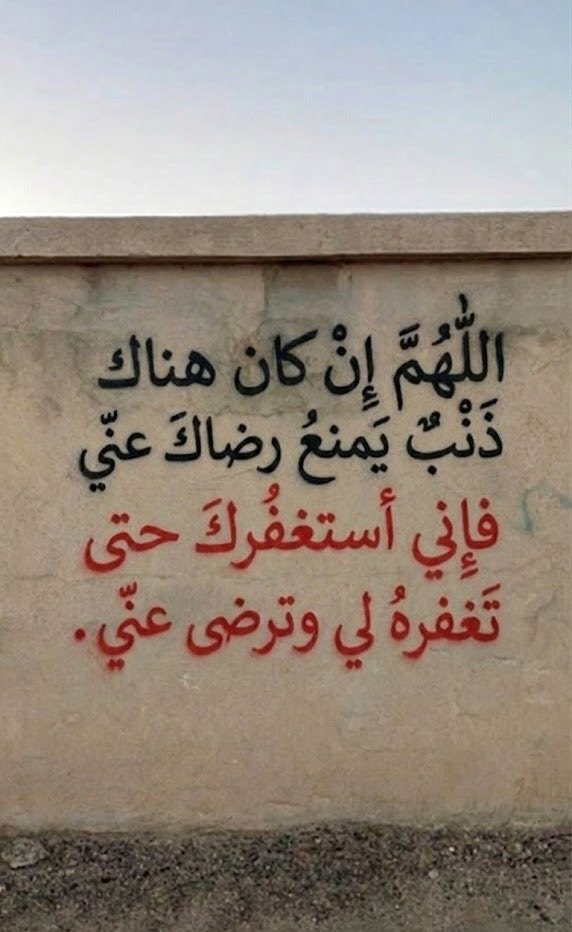 اللّٰهُمَّ إِنْ كان هناك
ذَنْبٌ يَمنعُ رضاكَ عنّي
فإِني أستغفُركَ حتى
تَغفرهُ لي وترضى عنّي.